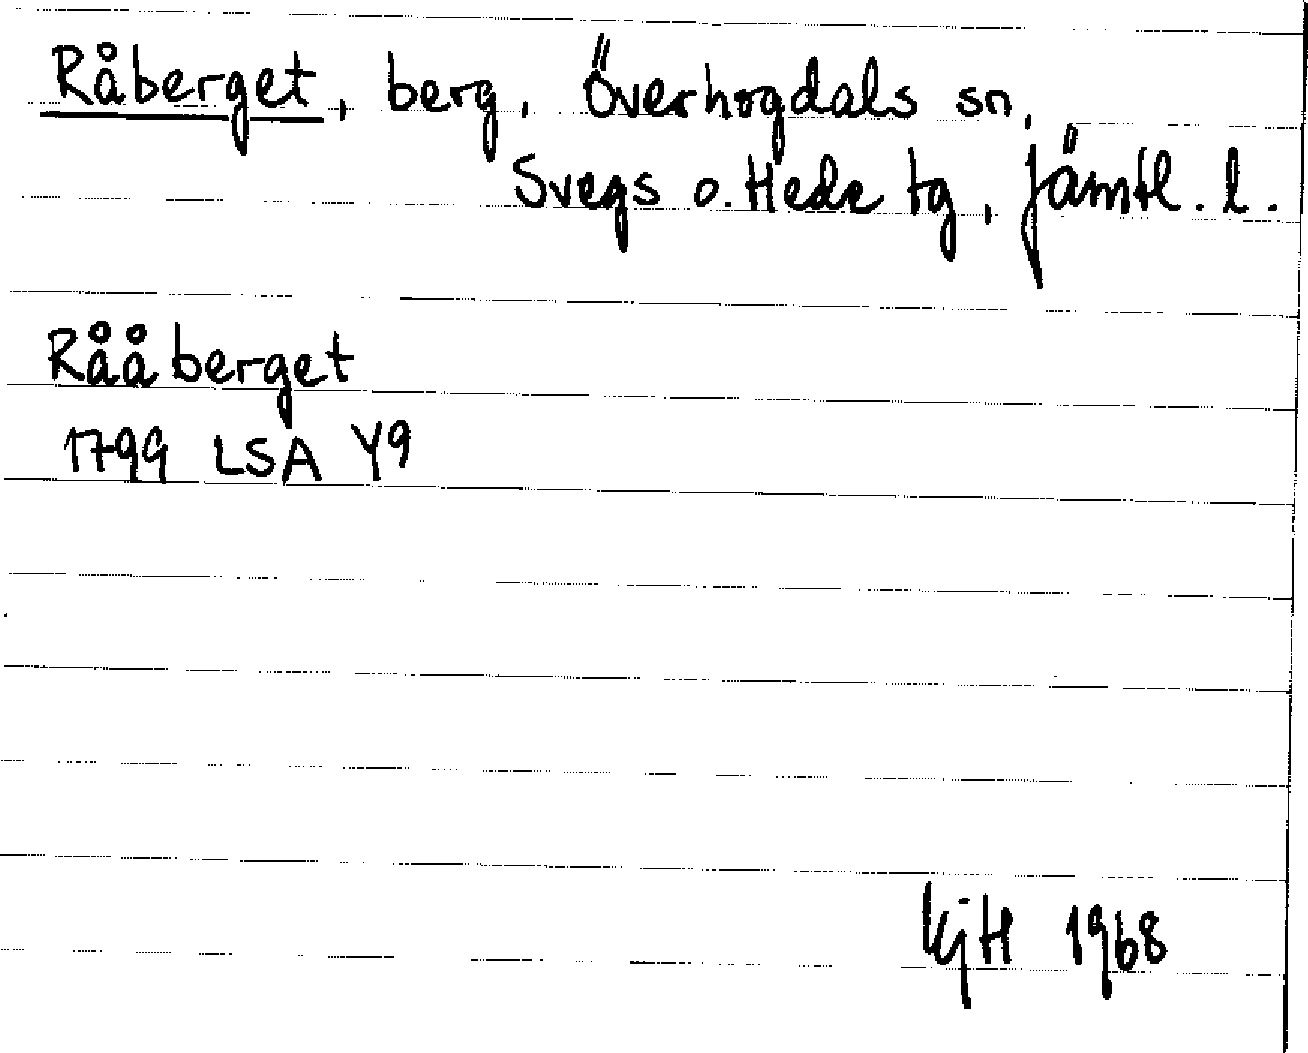 Råberget, berg, Överhogdals sn,
Svegs o. Hede tg, Jämtl. l.
Rååberget
1799 LSA Y9
KjH 1968